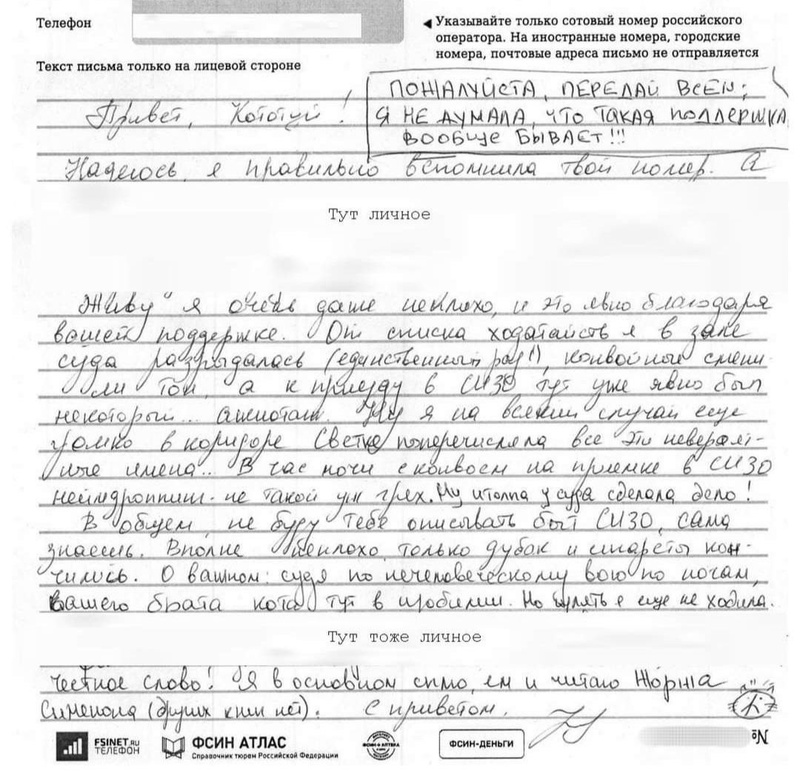 Телефон
◄ Указывайте только сотовый номер российского
оператора. На иностранные номера, городские
номера, почтовые адреса письмо не отправляется
Текст письма только на лицевой стороне
ПОЖАЛУЙСТА, ПЕРЕДАЙ ВСЕМ:
Я НЕ ДУМАЛА, ЧТО ТАКАЯ ПОДДЕРЖКА
ВООБЩЕ БЫВАЕТ!!!
Привет, !
Надеюсь, я правильно вспомнила твой номер. А
Тут личное
"Живу" я очень даже неплохо, и это явно благодаря
вашей поддержке. От списка ходатайств я в зале
суда разрыдалась (единственный раз!), конвойные смени-
ли тон, а к приезду в СИЗО тут уже явно был
некоторый... ажиотаж. Ну я на всякий случай еще
громко в коридоре Светке поперечисляла все эти невероят-
ные имена... В час ночи с конвоем на приемке в СИЗО
неймдроппинг - не такой уж грех. Ну и толпа у суда сделала дело!
В общем, не буду тебе описывать быт СИЗО, сама
знаешь. Вполне неплохо, только дубак и сигареты кон-
чились. О важном: судя по нечеловеческому вою по ночам,
вашего брата кота тут в изобилии. Но гулять я еще не ходила.
Тут тоже личное
честное слово! Я в основном сплю, ем и читаю Жоржа
Сименона (других книг нет). С приветом,
FSINET.RU
ТЕЛЕФОН
ФСИН АТЛАС
Справочник тюрем Российской Федерации
ФСИН-АПТЕКА
ФСИН-ДЕНЬГИ
№